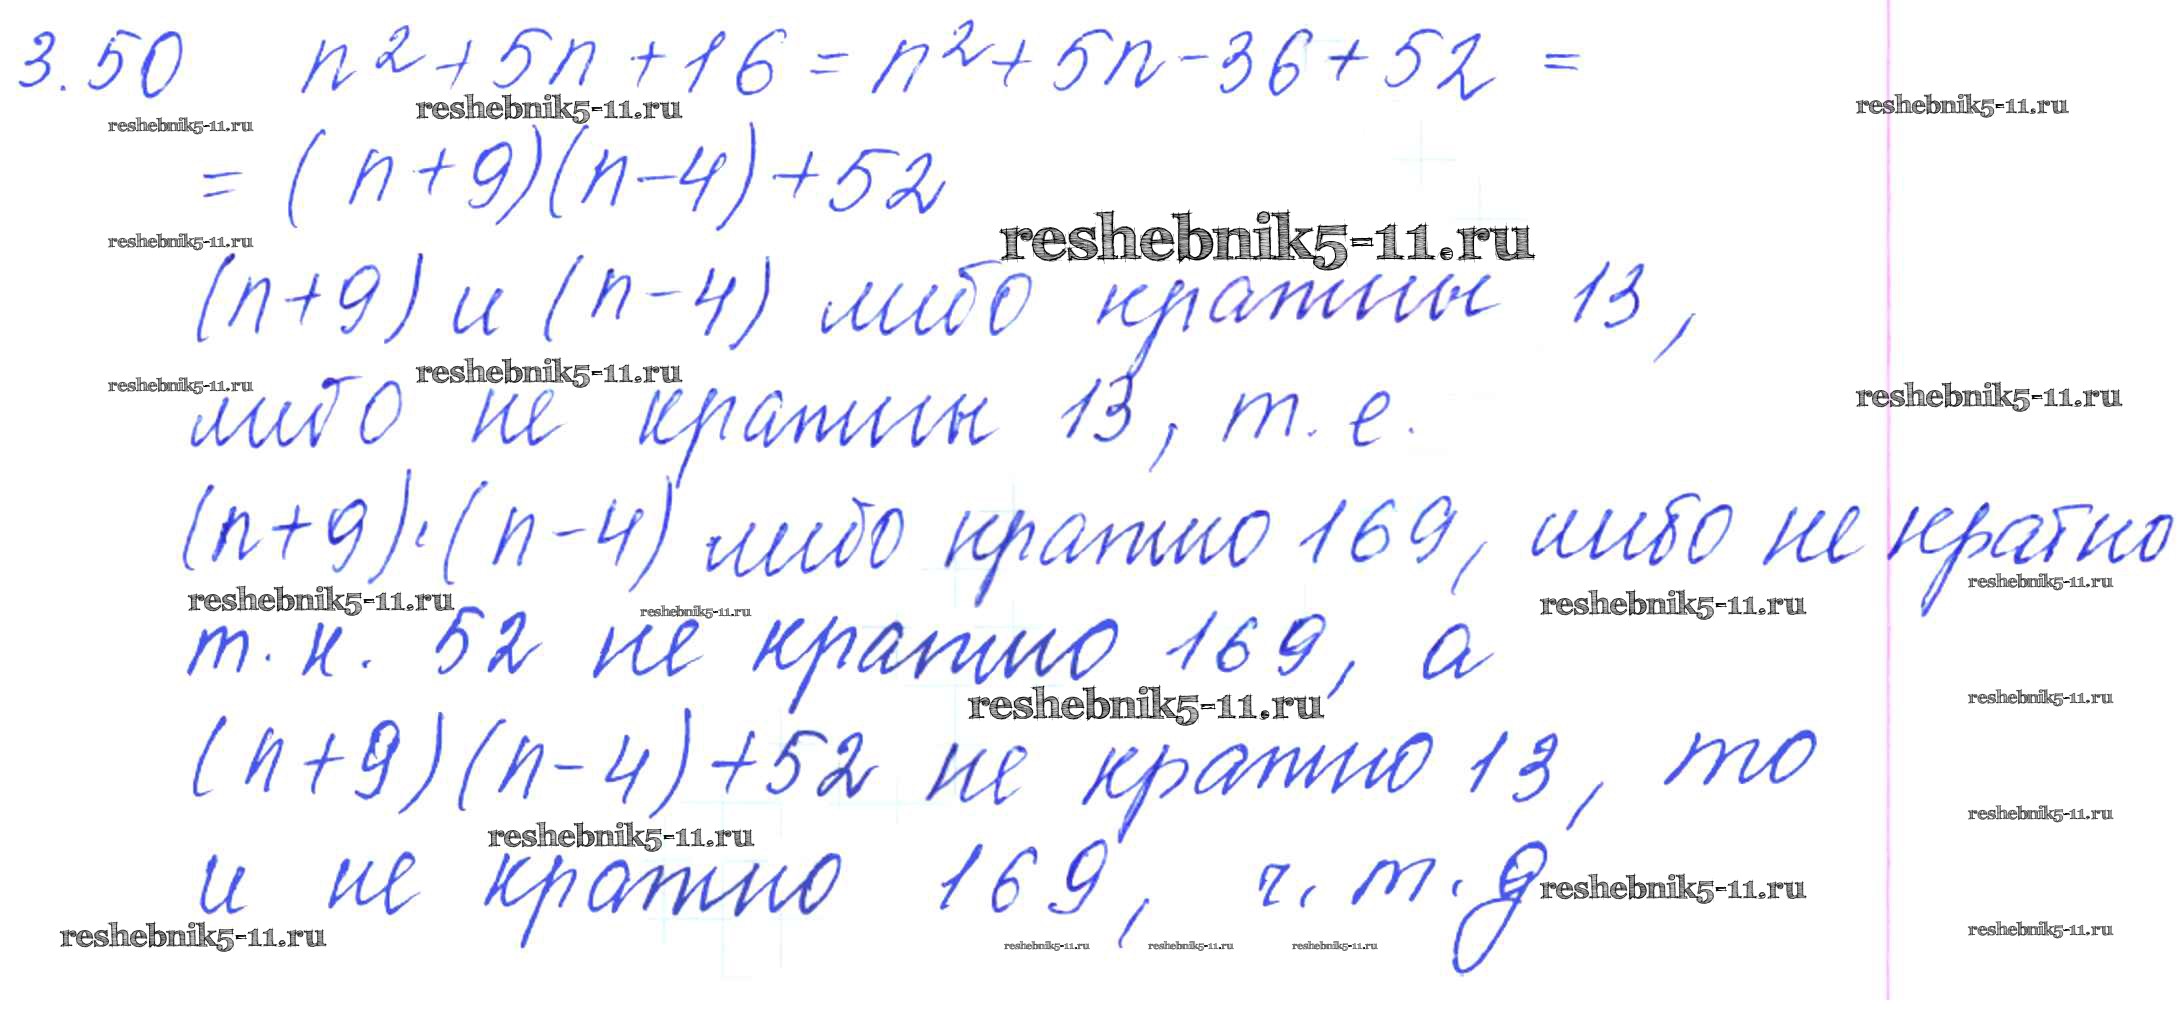 3.50 n²+5n+16=n²+5n-36+52=
reshebnik5-11.ru reshebnik5-11.ru reshebnik5-11.ru
=(n+9)(n-4)+52
reshebnik5-11.ru reshebnik5-11.ru
(n+9) и (n-4) либо кратны 13,
reshebnik5-11.ru reshebnik5-11.ru reshebnik5-11.ru
либо не кратны 13, т.е.
(n+9)·(n-4) либо кратно 169, либо не кратно
reshebnik5-11.ru reshebnik5-11.ru reshebnik5-11.ru reshebnik5-11.ru
т.к. 52 не кратно 169, а
reshebnik5-11.ru reshebnik5-11.ru
(n+9)(n-4)+52 не кратно 13, то
reshebnik5-11.ru reshebnik5-11.ru
и не кратно 169, ч.т.д
reshebnik5-11.ru
reshebnik5-11.ru reshebnik5-11.ru reshebnik5-11.ru reshebnik5-11.ru reshebnik5-11.ru